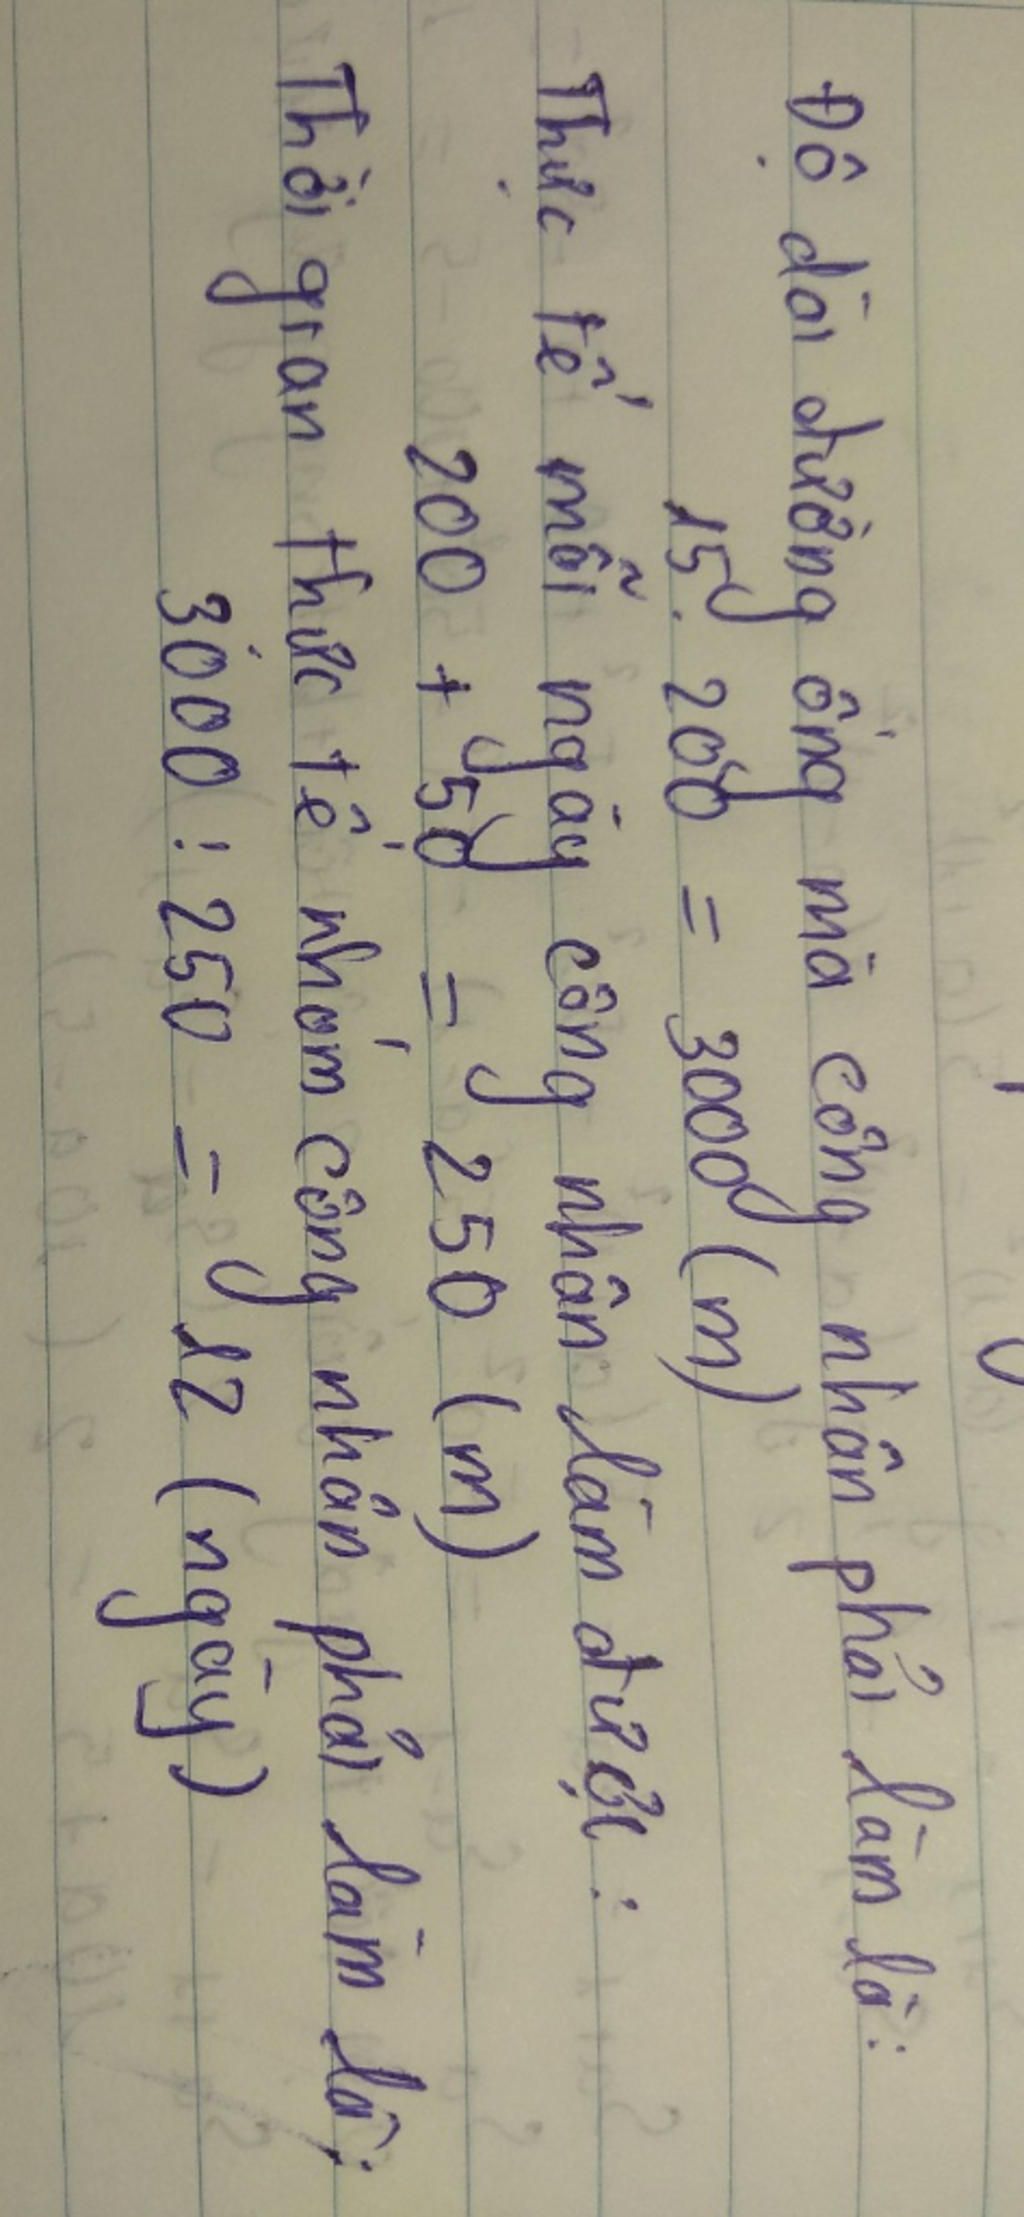 Độ dài đường ống mà công nhân phải làm là:
15. 200 = 3000 (m)
Thực tế mỗi ngày công nhân làm được:
200 + 50 = 250 (m)
Thời gian thực tế nhóm công nhân phải làm là:
3000 : 250 = 12 (ngày)